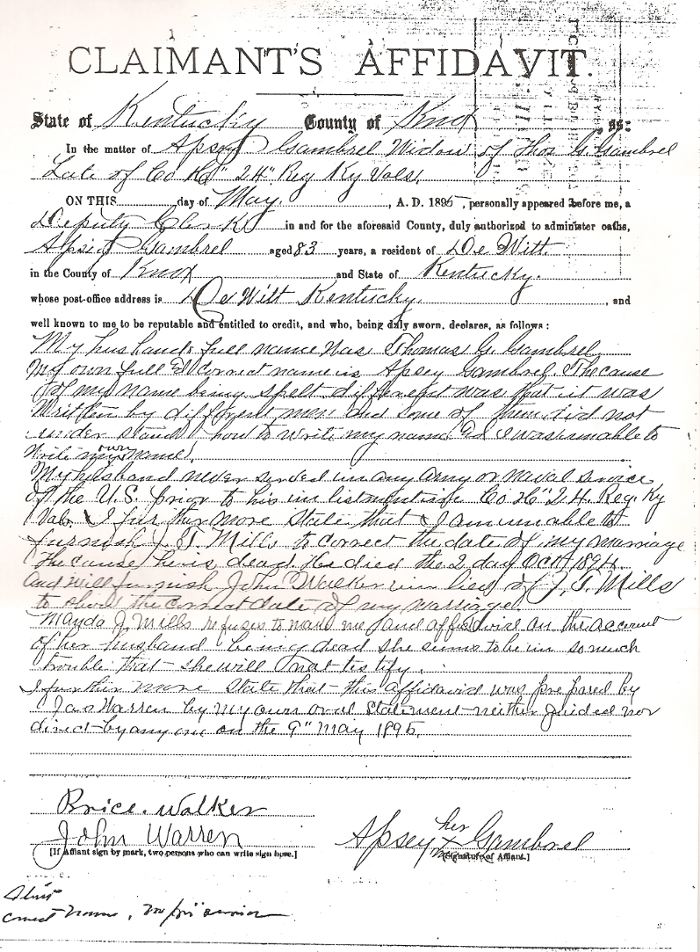 CLAIMANT'S AFFIDAVIT.
State of Kentucky County of Knox, ss:
In the matter of Apsey Gambrel Widow of Thos G. Gambrel
Late of Co "H" 24" Reg Ky Vols,
ON THIS day of May, A. D. 1895, personally appeared before me, a
Deputy Clerk in and for the aforesaid County, duly authorized to administer oaths,
Apsey Gambrel aged 83 years, a resident of De Witt
in the County of Knox and State of Kentucky.
whose post-office address is De Witt Kentucky, and
well known to me to be reputable and entitled to credit, and who, being duly sworn, declares, as follows:
My husbands full name was Thomas G. Gambrel
My own full & correct name is Apsey Gambrel The cause
of my name being spelt different was that it was
written by different men and some of them did not
under stand how to write my name and I was unable to
write my own name.
My husband never served in any Army or Naval service
of the U.S. prior to his in listment in Co "H" 24. Reg. Ky
Vols. I fur ther more state that I am unable to
furnish J. T. Mills to correct the date of my marriage
The cause he is dead. He died the 2 day Oct 1894.
and will furnish John Walker in lieu of J. T. Mills
to show the correct date of my marriage.
Manda J. Mills refuses to make me said affidavid on the account
of her husband being dead she seems to be in so much
trouble that she will not testify.
I further more state that this affidavid was prepared by
Jas Warren by my own oral statement neither guided nor
direct by any one on the 9" May 1895,
Brice. Walker
John Warren
[If Affiant sign by mark, two persons who can write sign here.]
Apsey her x Gambrel
[Signature of Affiant.]
correct name,